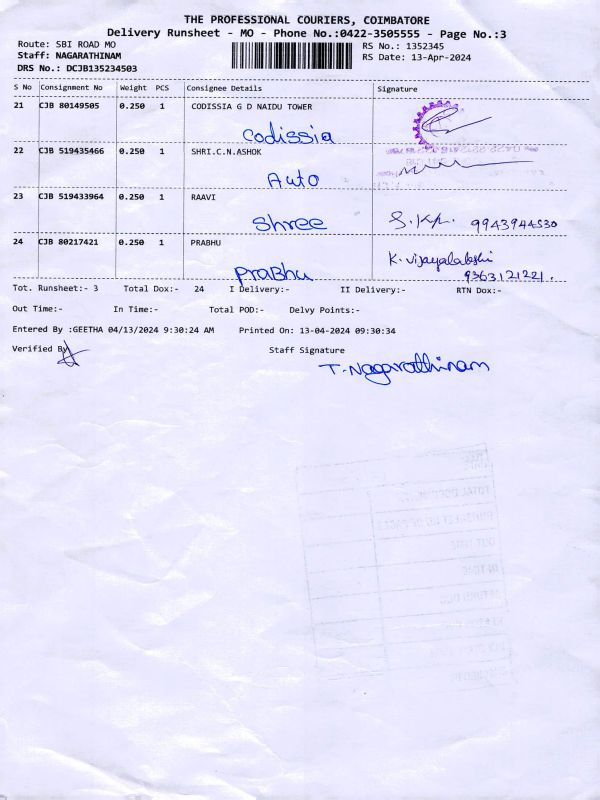 THE PROFESSIONAL COURIERS, COIMBATORE
Delivery Runsheet - MO - Phone No.:0422-3505555 - Page No.:3
Route: SBI ROAD MO
RS No.: 1352345
Staff: NAGARATHINAM
RS Date: 13-Apr-2024
DRS No.: DCJB135234503
S No Consignment No Weight PCS Consignee Details Signature
21 CJB 80149505 0.250 1 CODISSIA G D NAIDU TOWER
Codissia
22 CJB 519435466 0.250 1 SHRI.C.N.ASHOK
Auto
23 CJB 519433964 0.250 1 RAAVI
Shree 9943944530
24 CJB 80217421 0.250 1 PRABHU
K. Vijayalakshi
Prabhu 9363121221.
Tot. Runsheet:- 3 Total Dox:- 24 I Delivery:- II Delivery:- RTN Dox:-
Out Time:- In Time:- Total POD:- Delvy Points:-
Entered By :GEETHA 04/13/2024 9:30:24 AM Printed On: 13-04-2024 09:30:34
Verified By Staff Signature
T. Nagarathinam